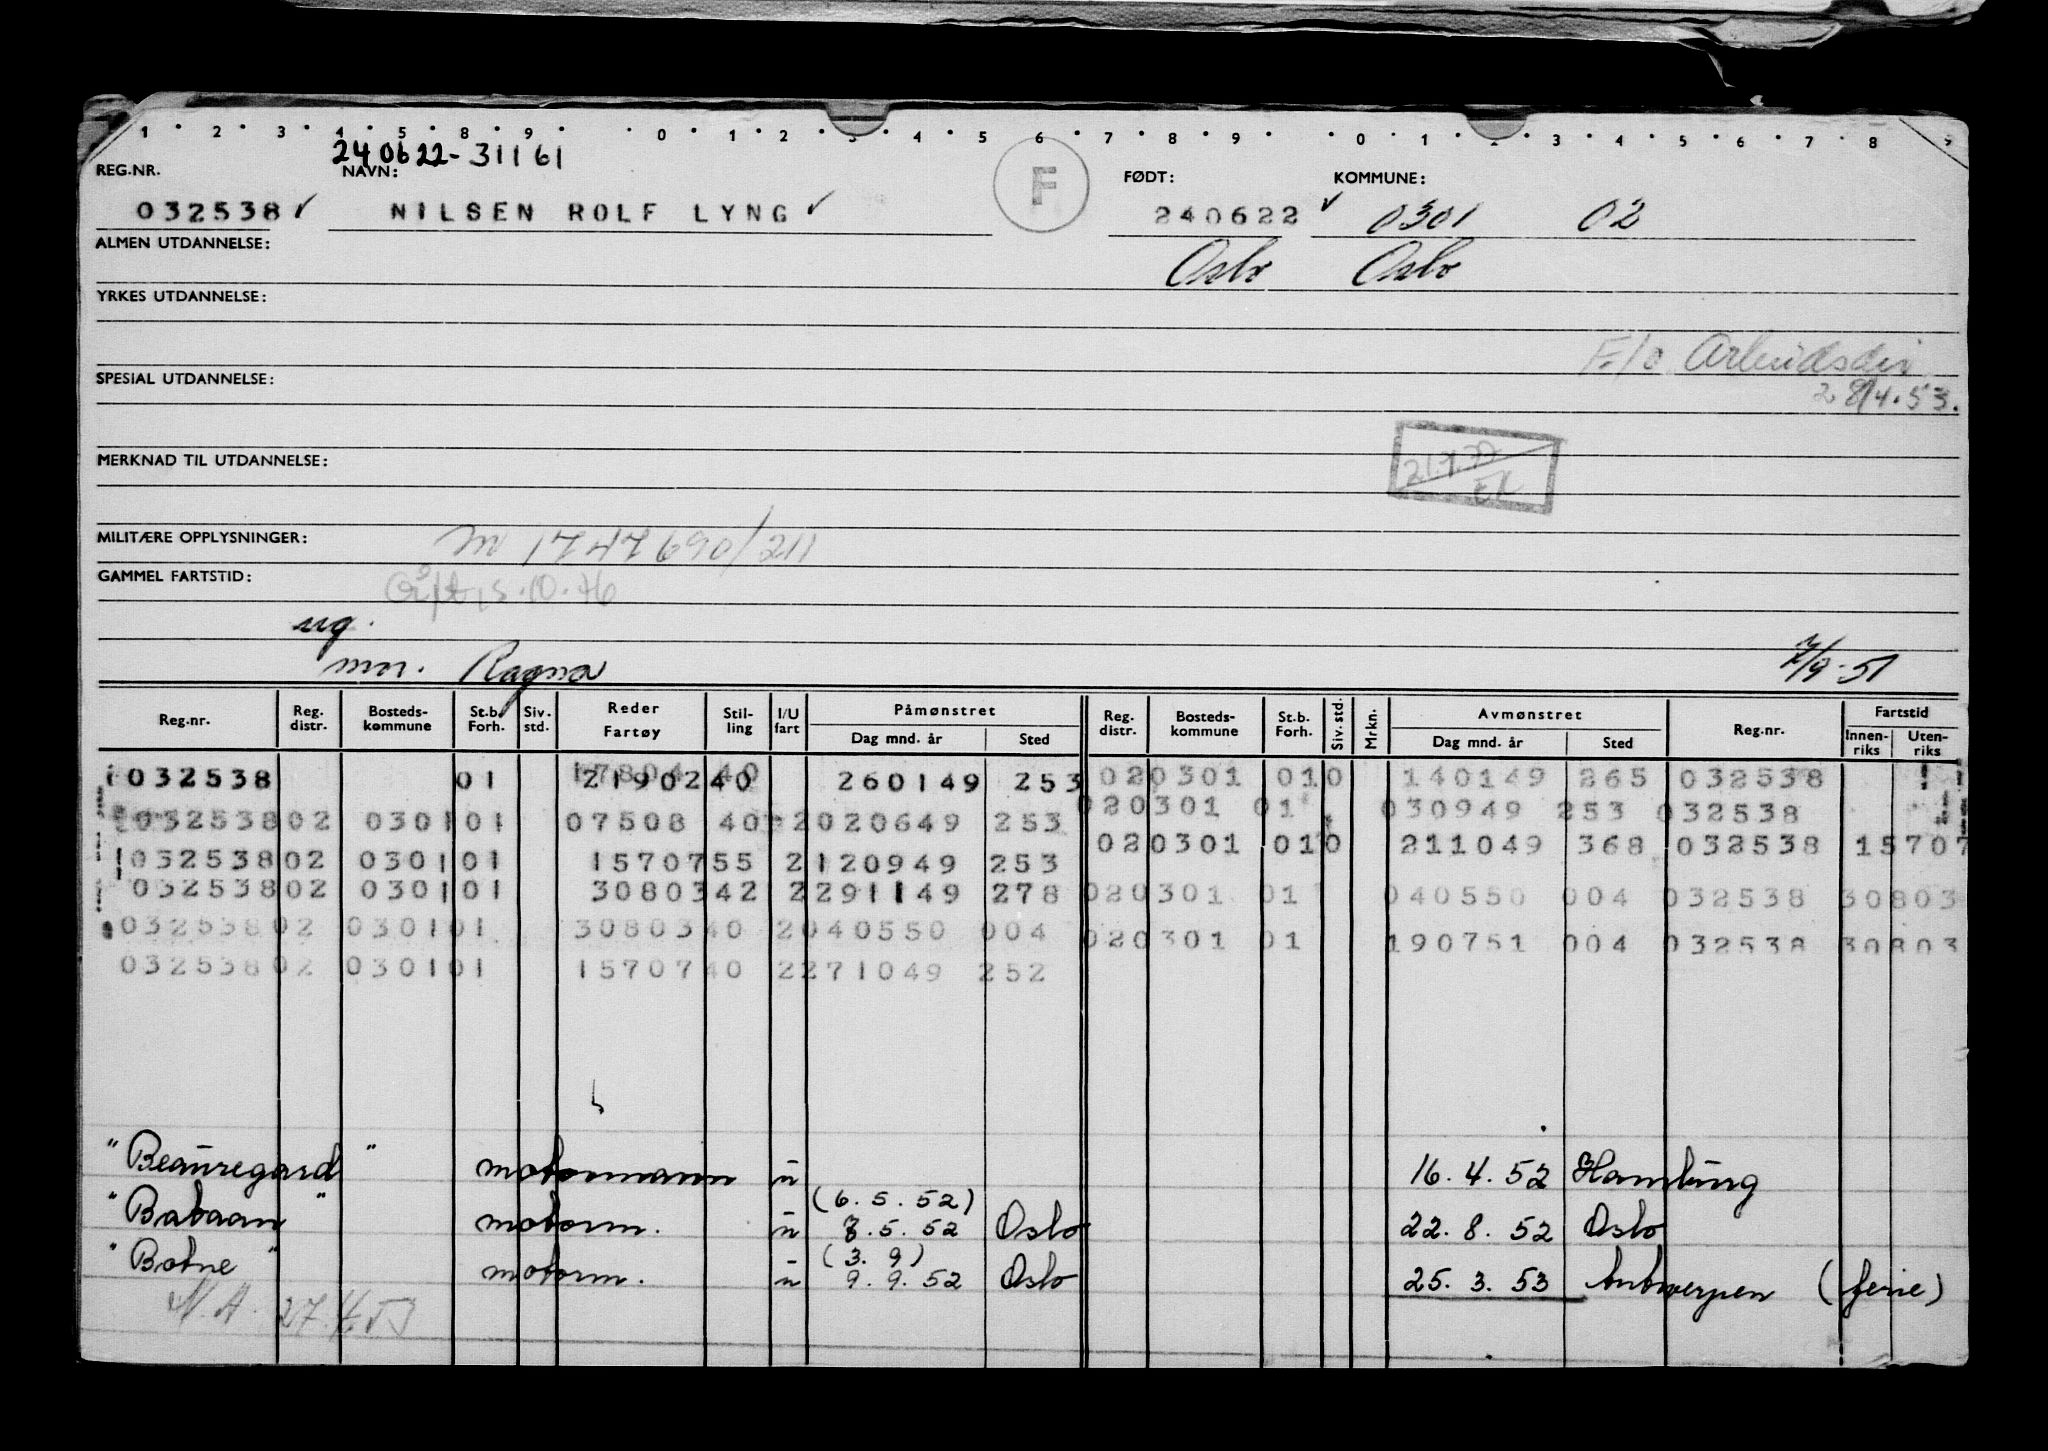 1 2 3 4 5 8 9 0 1 2 3 4 5 6 7 8 9 0 1 2 3 4 5 6 7 8 9
240622-31161
REG.NR. NAVN: F FØDT: KOMMUNE:
032538 ✓ NILSEN ROLF LYNG ✓ 240622 ✓ 0301 02
ALMEN UTDANNELSE: Oslo Oslo
YRKES UTDANNELSE:
F./o Arbeidsdir.
SPESIAL UTDANNELSE: 28/4.53.
MERKNAD TIL UTDANNELSE:
EK
MILITÆRE OPPLYSNINGER:
GAMMEL FARTSTID:
15.10.76
ug.
mor. Ragna 7/9-51
Reg.nr. Reg. distr. Bosteds-kommune St.b. Forh. Siv. std. Reder Fartøy Stil-ling I/U fart Påmønstret Dag mnd. år Sted Reg. distr. Bosteds-kommune St.b. Forh. Siv. std. Mrkn. Avmønstret Dag mnd. år Sted Reg.nr. Fartstid Innen-riks Uten-riks
17804 40
032538 01 21902 40 260149 253 020301 010 140149 265 032538
020301 01 030949 253 032538
032538 02 0301 01 07508 40 2 020649 253
020301 010 211049 368 032538 15707
032538 02 0301 01 15707 55 2 120949 253
032538 02 0301 01 30803 42 2 291149 278 020301 01 040550 004 032538 30803
032538 02 0301 01 30803 40 2 040550 004 020301 01 190751 004 032538 30803
032538 02 0301 01 15707 40 2 271049 252
"Beauregard" motormann u 16.4.52 Hamburg
(6.5.52)
"Bataan" motorm. u 8.5.52 Oslo 22.8.52 Oslo
(3.9)
"Botne" motorm. u 9.9.52 Oslo 25.3.53 Antwerpen (ferie)
N.A.